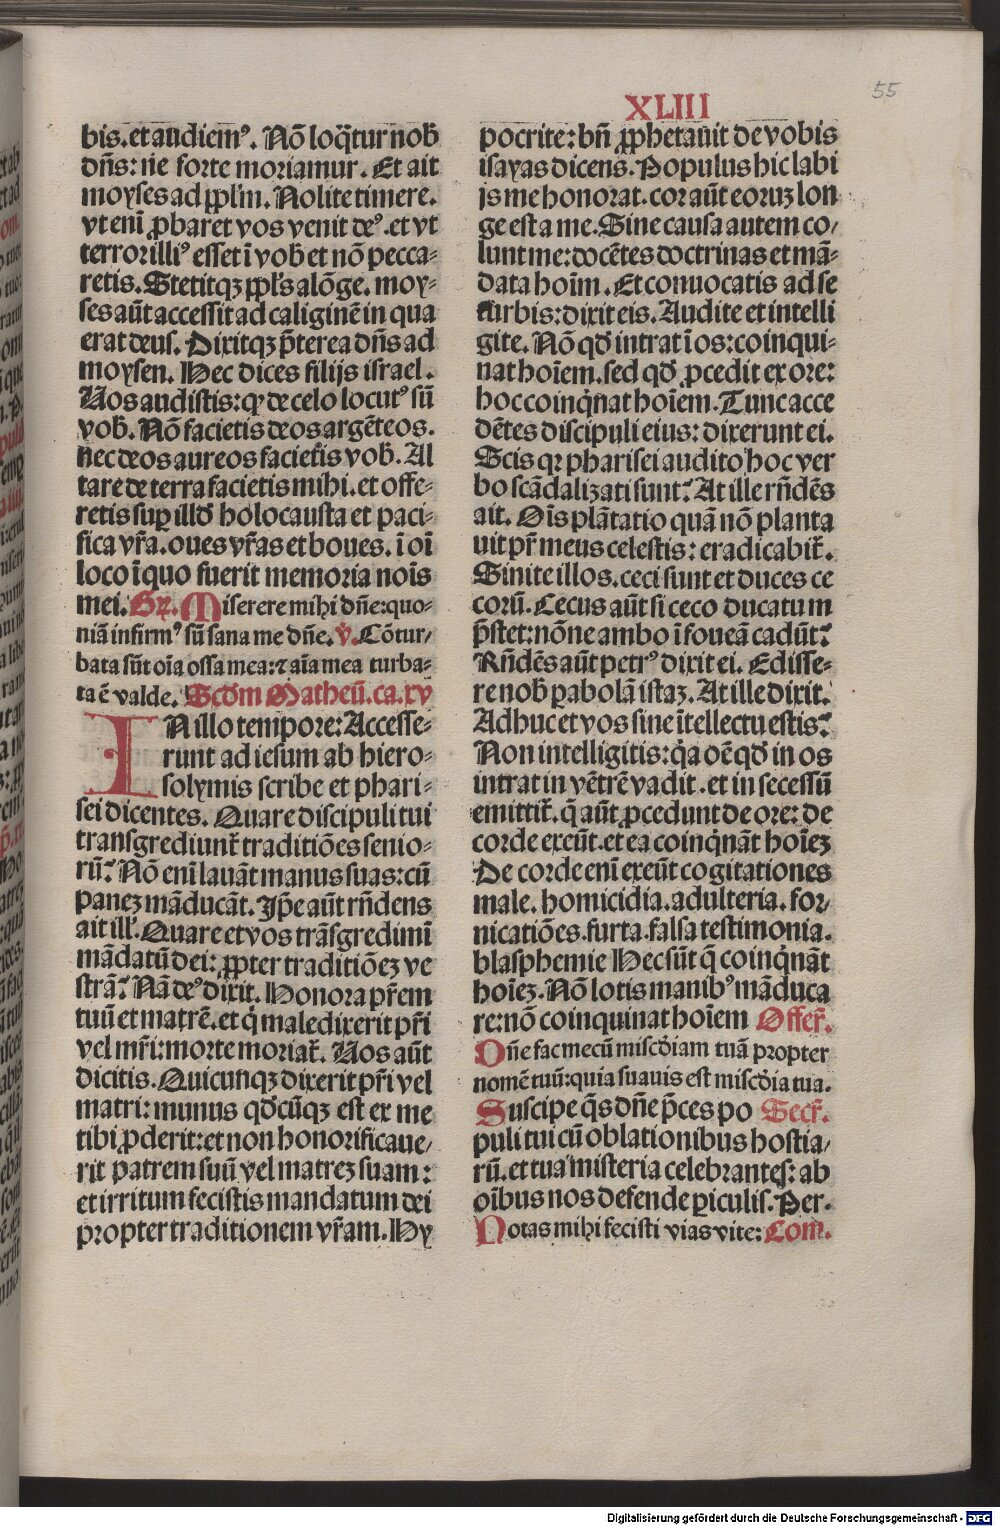 55
XLIII
bis. et audiemꝰ. Nō loq̄tur nob̄
dn̄s: ne forte moriamur. Et ait
moyses ad ppl'm. Nolite timere.
vt enī ꝓbaret vos venit deꝰ. et vt
terror illiꝰ esset ī vob̄ et nō pecca⸗
retis. Stetitqꝫ ppl's alōge. moy⸗
ses aūt accessit ad caliginē in qua
erat deus. Dixitqꝫ p̄terea dn̄s ad
moysen. Hec dices filijs israel.
Uos audistis: qꝙ de celo locutꝰ sū
vob̄. Nō facietis deos argēteos.
nec deos aureos facietis vob̄. Al
tare de terra facietis mihi. et offe⸗
retis suꝑ illd̄ holocausta et paci⸗
fica vr̄a. oues vr̄as et boues. ī oī
loco ī quo fuerit memoria noīs
mei. Gr̄. Miserere mihi dn̄e: quo⸗
niā infirmꝰ sū sana me dn̄e. v̄. Cōtur/
bata sūt oīa ossa mea: ⁊ aīa mea turba⸗
ta ē valde. Scd̄m Matheū. ca. xv
IN illo tempore: Accesse⸗
runt ad iesum ab hiero⸗
solymis scribe et phari⸗
sei dicentes. Quare discipuli tui
transgrediunt̄ traditiōes senio⸗
rū? Nō enī lauāt manus suas: cū
paneꝫ māducāt. Ip̄e aūt rn̄dens
ait ill'. Quare et vos trāsgredimī
mādatū dei: ꝓpter traditiōeꝫ ve
strā? Nā deꝰ dixit. Honora pr̄em
tuū et matrē. et q̇ maledixerit pr̄i
vel mr̄i: morte moriat̄. Uos aūt
dicitis. Quicunqꝫ dixerit pr̄i vel
matri: munus qd̄cūqꝫ est ex me
tibi ꝓderit: et non honorificaue/
rit patrem suū vel matreꝫ suam:
et irritum fecistis mandatum dei
propter traditionem vr̄am. Hy
pocrite: bn̄ ꝓphetauit de vobis
isayas dicens. Populus hic labi
js me honorat. cor aūt eoruꝫ lon
ge est a me. Sine causa autem co/
lunt me: docētes doctrinas et mā⸗
data hoīm. Et conuocatis ad se
turbis: dixit eis. Audite et intelli
gite. Nō qd̄ intrat ī os: coinqui⸗
nat hoīem. sed qd̄ ꝓcedit ex ore:
hoc coinq̇nat hoīem. Tunc acce
dētes discipuli eius: dixerunt ei.
Scis qꝛ pharisei audito hoc ver
bo scādalizati sunt? At ille rn̄dēs
ait. Oīs plātatio quā nō planta
uit pr̄ meus celestis: eradicabit̄.
Sinite illos. ceci sunt et duces ce
corū. Cecus aūt si ceco ducatum
p̄stet: nōne ambo ī foueā cadūt?
Rn̄dēs aūt petrꝰ dixit ei. Edisse⸗
re nob̄ ꝑabolā istaꝫ. At ille dixit.
Adhuc et vos sine ītellectu estis?
Non intelligitis: q̇a oē qd̄ in os
intrat in vētrē vadit. et in secessū
emittit̄. q̄ aūt ꝓcedunt de ore: de
corde exeūt. et ea coinq̇nāt hoīeꝫ
De corde enī exeūt cogitationes
male. homicidia. adulteria. for⸗
nicatiōes. furta. falsa testimonia.
blasphemie Hec sūt q̄ coinq̇nāt
hoīeꝫ. Nō lotis manibꝰ māduca
re: nō coinquinat hoīem Offer̄.
Dn̄e fac mecū misc̄diam tuā propter
nomē tuū: quia suauis est misc̄dia tua.
Suscipe q̄s dn̄e p̄ces po Secr̄.
puli tui cū oblationibus hostia/
rū. et tua misteria celebrantes: ab
oībus nos defende ꝑiculis. Per.
Notas mihi fecisti vias vite: Com̄.
Digitalisierung gefördert durch die Deutsche Forschungsgemeinschaft - DFG